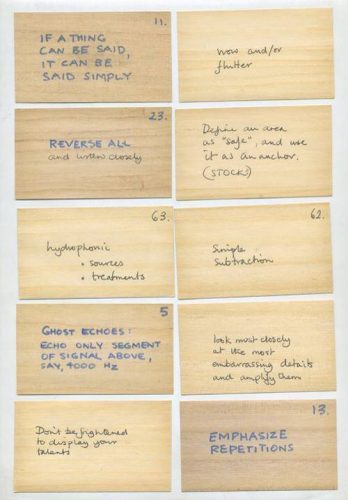 11.
IF A THING
CAN BE SAID,
IT CAN BE
SAID SIMPLY
wow and/or
flutter
23.
REVERSE ALL
and listen closely
Define an area
as "safe", and use
it as an anchor.
(STOCKS)
63.
hydrophonic
• sources
• treatments
62.
Simple
Subtraction
5
GHOST ECHOES:
ECHO ONLY SEGMENT
OF SIGNAL ABOVE,
SAY, 4000 HZ
look most closely
at the most
embarrassing details
and amplify them
Don't be frightened
to display your
talents
13.
EMPHASIZE
REPETITIONS